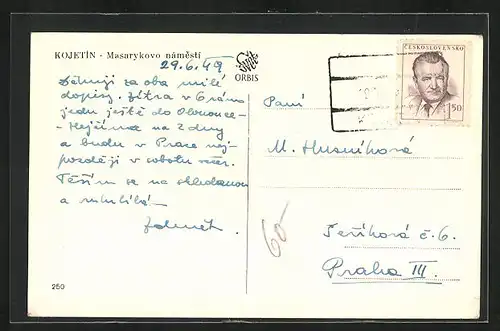 KOJETÍN - Masarykovo náměstí
29.6.49
ORBIS
Děkuji za oba milé
dopisy. Zítra v 6 ráno
jedu ještě do Olomouce -
na 2 dny
a budu v Praze nej-
později v sobotu večer.
Těším se na shledanou
a
Zdeněk.
250
ČESKOSLOVENSKO
1.50
Paní
M. Husníková
60-
Šeříková č. 6.
Praha III.